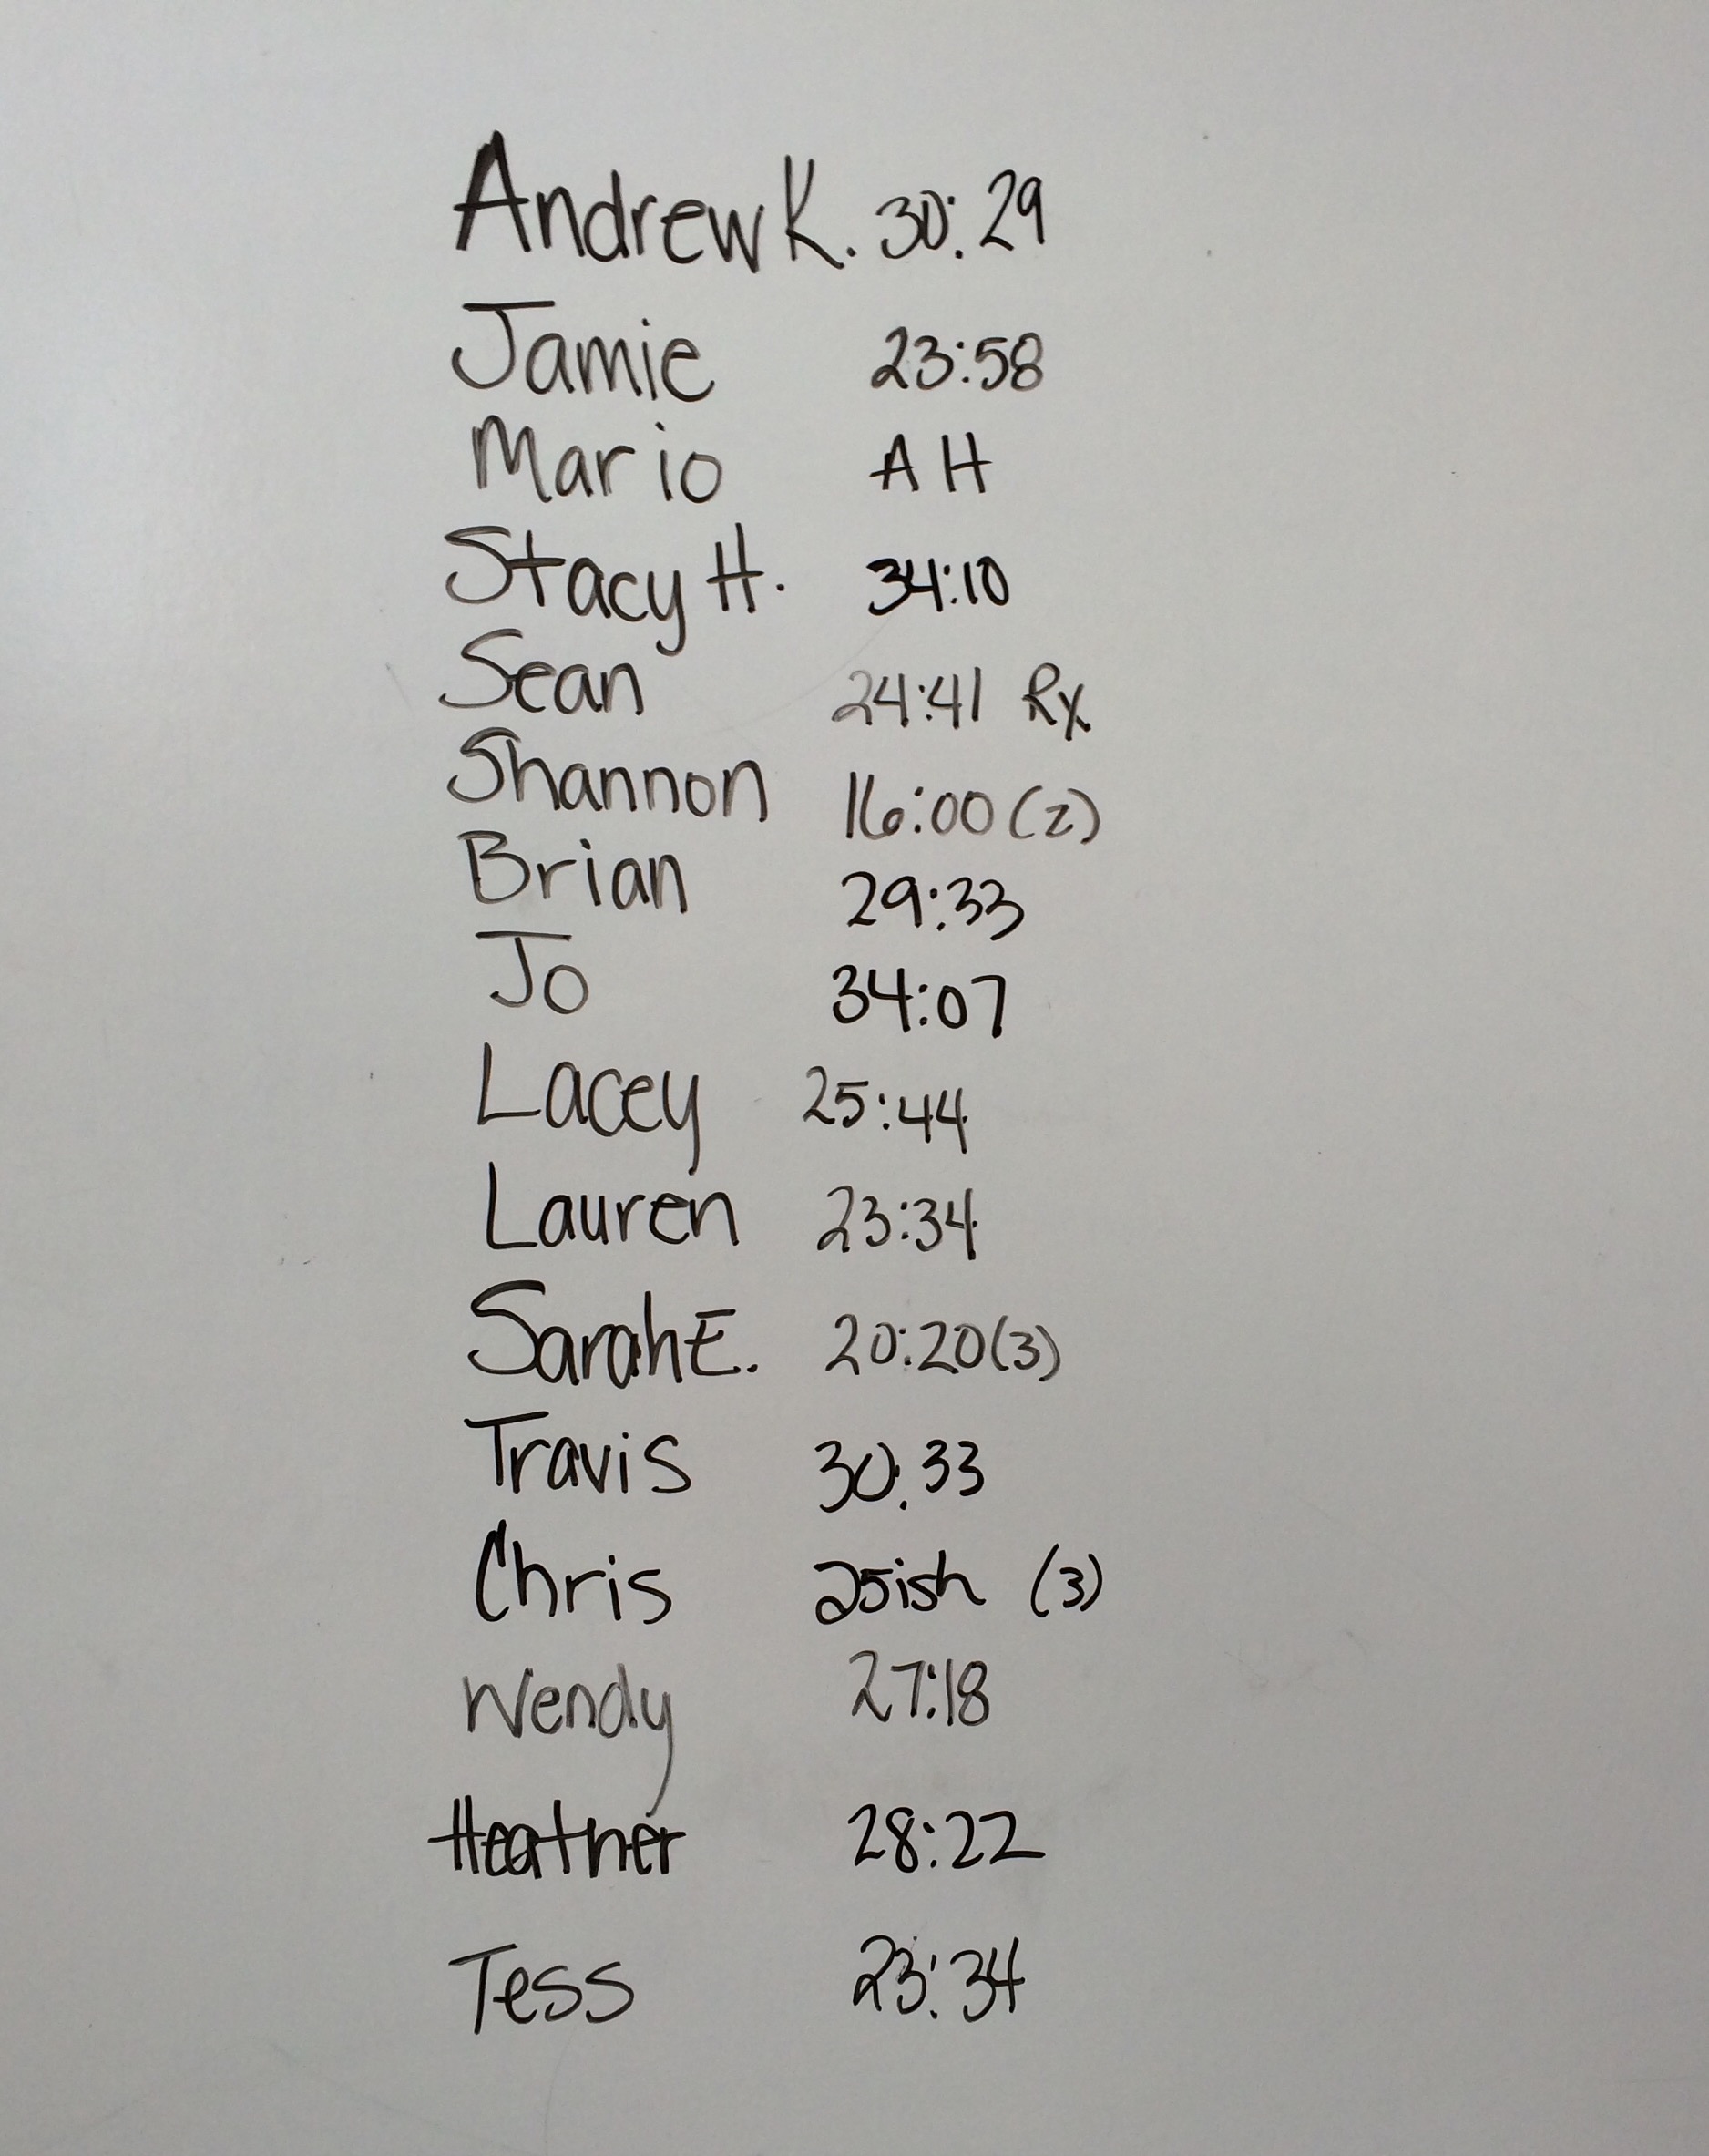 Andrew K. 30:29
Jamie 23:58
Mario AH
Stacy H. 34:10
Sean 24:41 Rx
Shannon 16:00 (2)
Brian 29:33
Jo 34:07
Lacey 25:44
Lauren 23:34
Sarah E. 20:20 (3)
Travis 30:33
Chris 25ish (3)
Wendy 27:18
Heather 28:22
Tess 23:34